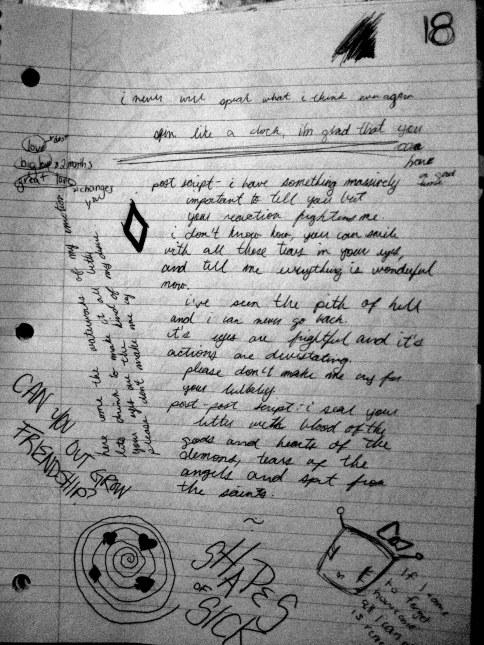 18
i never will speak what i think ever again
open like a clock, i'm glad that you
can
have
a good
time
love
big love = 2 months
great love
changes
you
post script - i have something massively
important to tell you but
your reaction frightens me.
i don't know how you can smile
with all those tears in your eyes,
and tell me everything is wonderful
now.
i've seen the pith of hell
and i can never go back.
it's eyes are frightful and it's
actions are devistating.
please don't make me cry for
your lullabey.
post-post script: i seal your
letter with blood of the
gods and hearts of the
demons, tears of the
angels and spit from
the saints.
~
here come the waterworks of my emotion
lets drink to make it all better
your eyes are the kind of my
please don't make me cry
CAN YOU OUT GROW
FRIENDSHIP?
SHAPES
OF
SICK
If I come
to forget